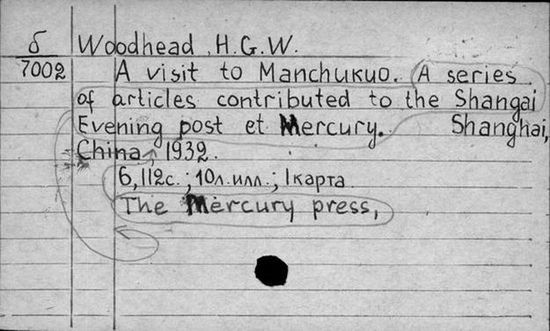 б Woodhead, H.G.W.
7002 A visit to Manchuкuo. A series
of articles contributed to the Shangai
Evening post et Mercury. Shanghai,
China, 1932.
6,112с.; 10л.илл.; 1карта
The Mercury press,